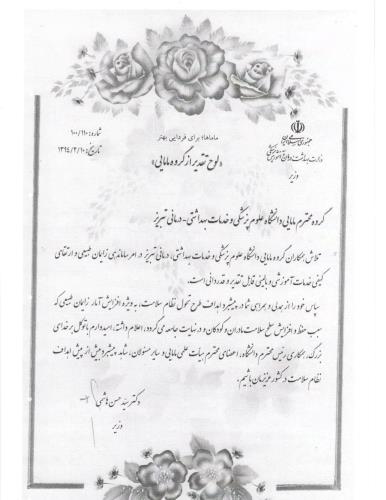 شماره: ۱۰۰/۱۱۰
تاریخ: ۱۳۹۴/۲/۱۰
جمهوری اسلامی ایران
وزارت بهداشت، درمان و آموزش پزشکی
وزیر
ماماها؛ برای فردایی بهتر
«لوح تقدیر از گروه مامایی»
گروه محترم مامایی دانشگاه علوم پزشکی و خدمات بهداشتی - درمانی تبریز
تلاش همکاران گروه مامایی دانشگاه علوم پزشکی و خدمات بهداشتی، درمانی تبریز در امر ساماندهی زایمان طبیعی و ارتقای
کیفی خدمات آموزشی و بالینی قابل تقدیر و قدردانی است.
سپاس خود را از همدلی و همراهی شما در پیشبرد اهداف طرح تحول نظام سلامت، به ویژه افزایش آمار زایمان طبیعی که
سبب حفظ و افزایش سطح سلامت مادران و کودکان و در نهایت جامعه می گردد، اعلام داشته، امیدوارم با توکل بر خدای
بزرگ، همکاری رئیس محترم دانشگاه، اعضای محترم هیأت علمی مامایی و سایر مسئولان، شاهد پیشبرد بیش از پیش اهداف
نظام سلامت در کشور عزیزمان باشیم.
دکتر سید حسن هاشمی
وزیر